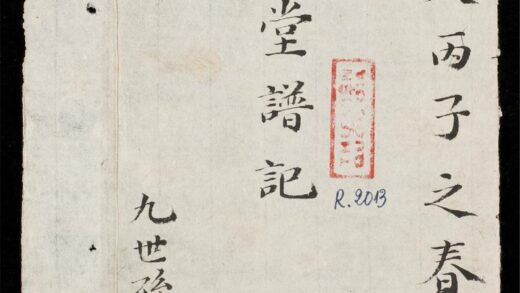 丙子之春
堂譜記
R.2013
九世孫